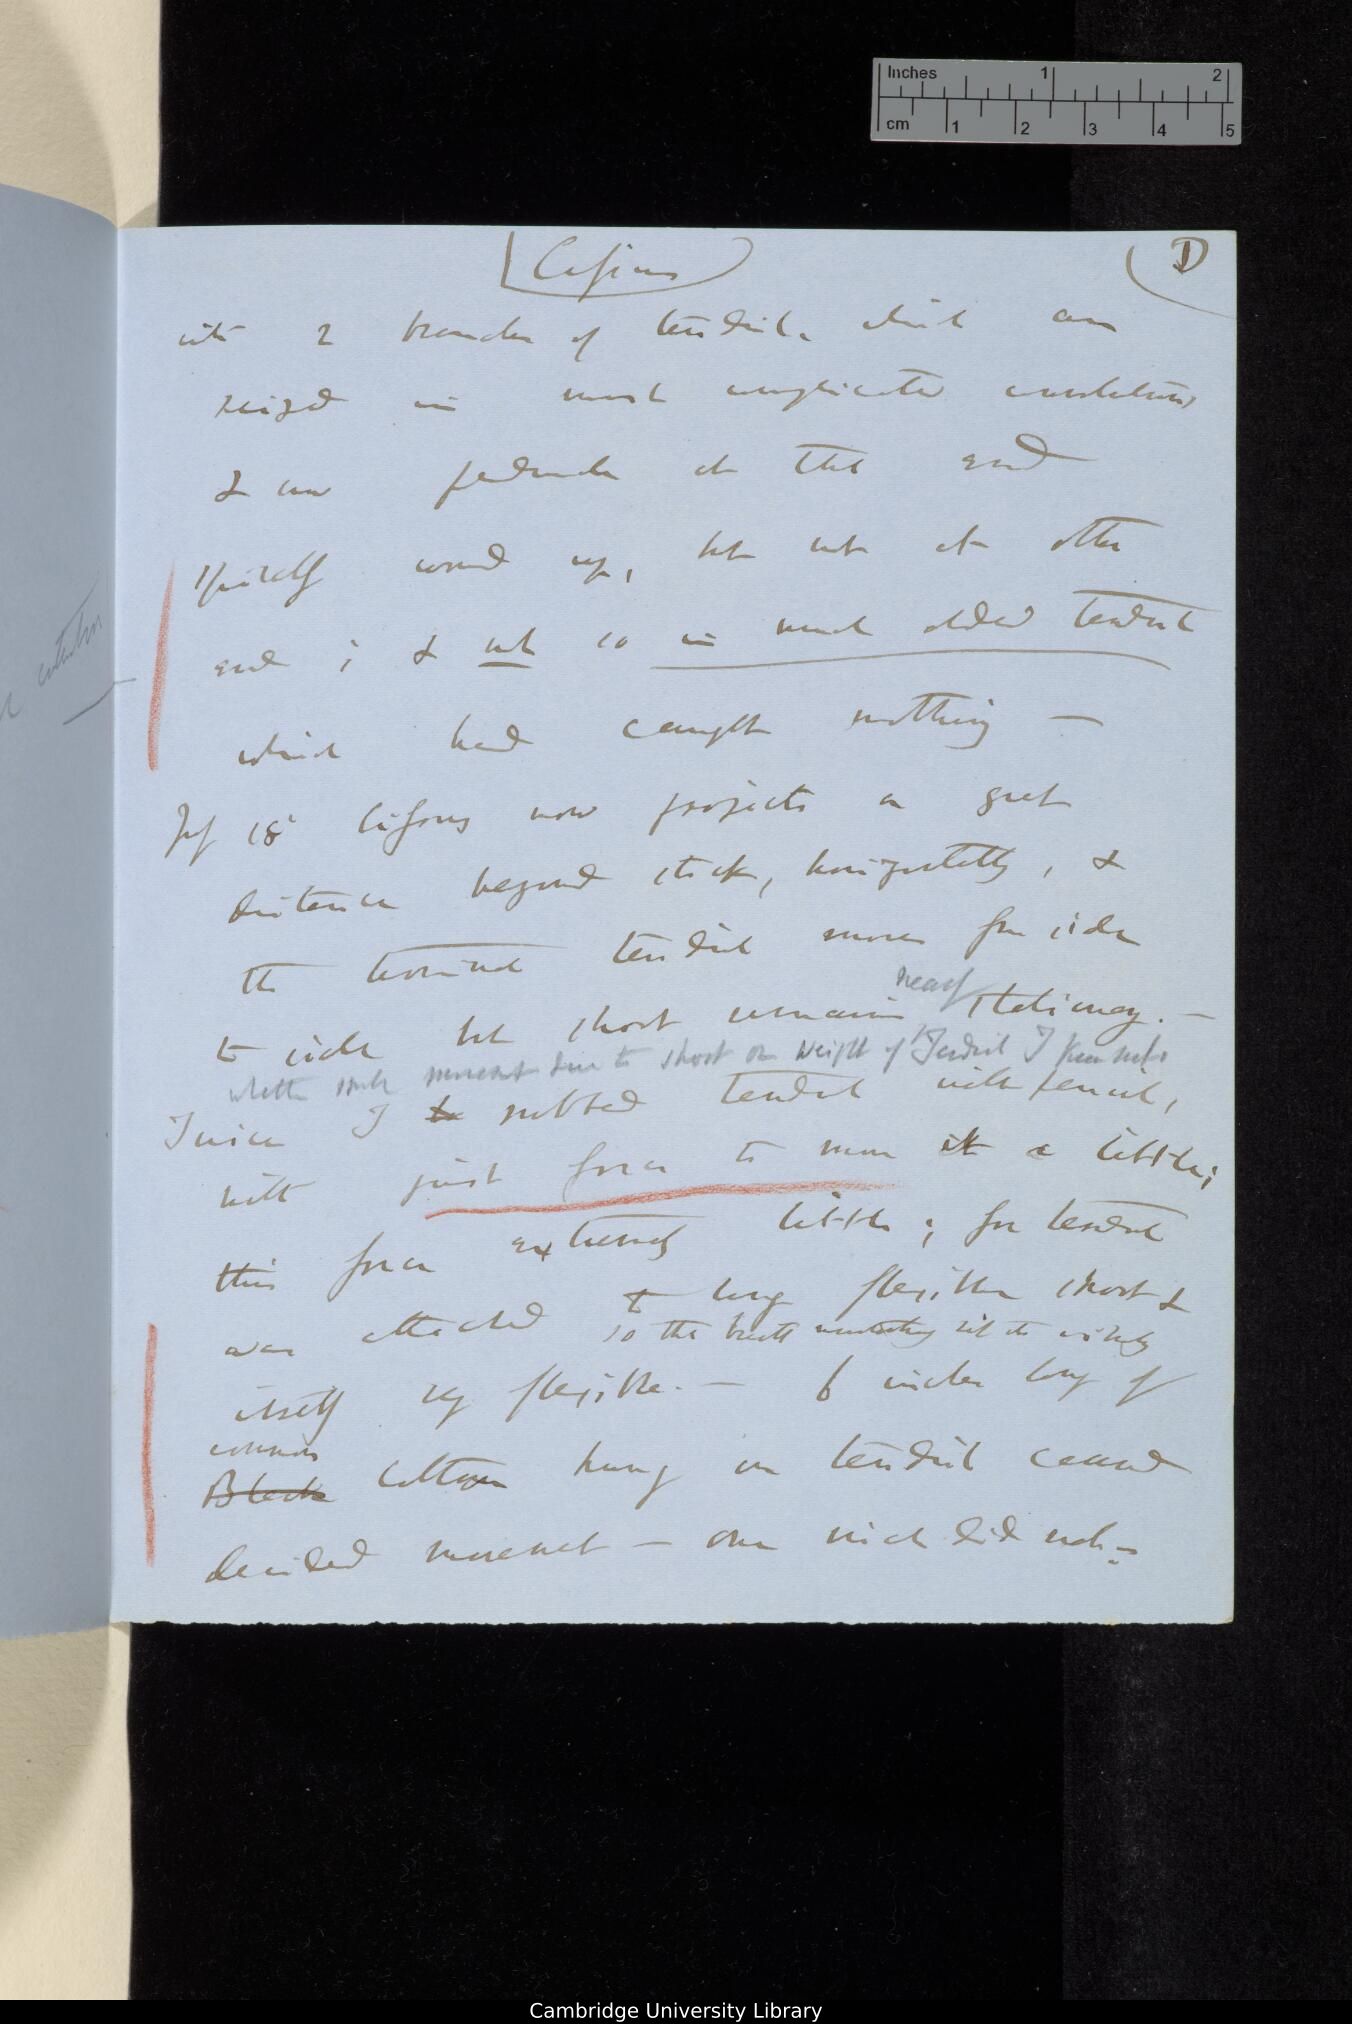 Inches 1 2
cm 1 2 3 4 5
Cissus
D
into 2 branches of tendril. which are
seized in most complicated convolutions
& one peduncle at this end
spirally wound up, but not at other
end; & not so in much older tendril
which had caught nothing —
July 18 Cissus now projects a great
distance beyond stick, horizontally, &
the terminal tendril moves from side
nearly
to side but shoot remains stationary. —
whether such movement due to shoot or weight of Tendril I know not
Twice I to rubbed tendril with pencil,
with just force to move it a little;
this force extremely little; for tendril
was attached to long flexible shoot &
so the break
itself very flexible. — 6 inches long of
common
Black Cotton hung on tendril caused
decided movement — one inch did not. —
Cambridge University Library